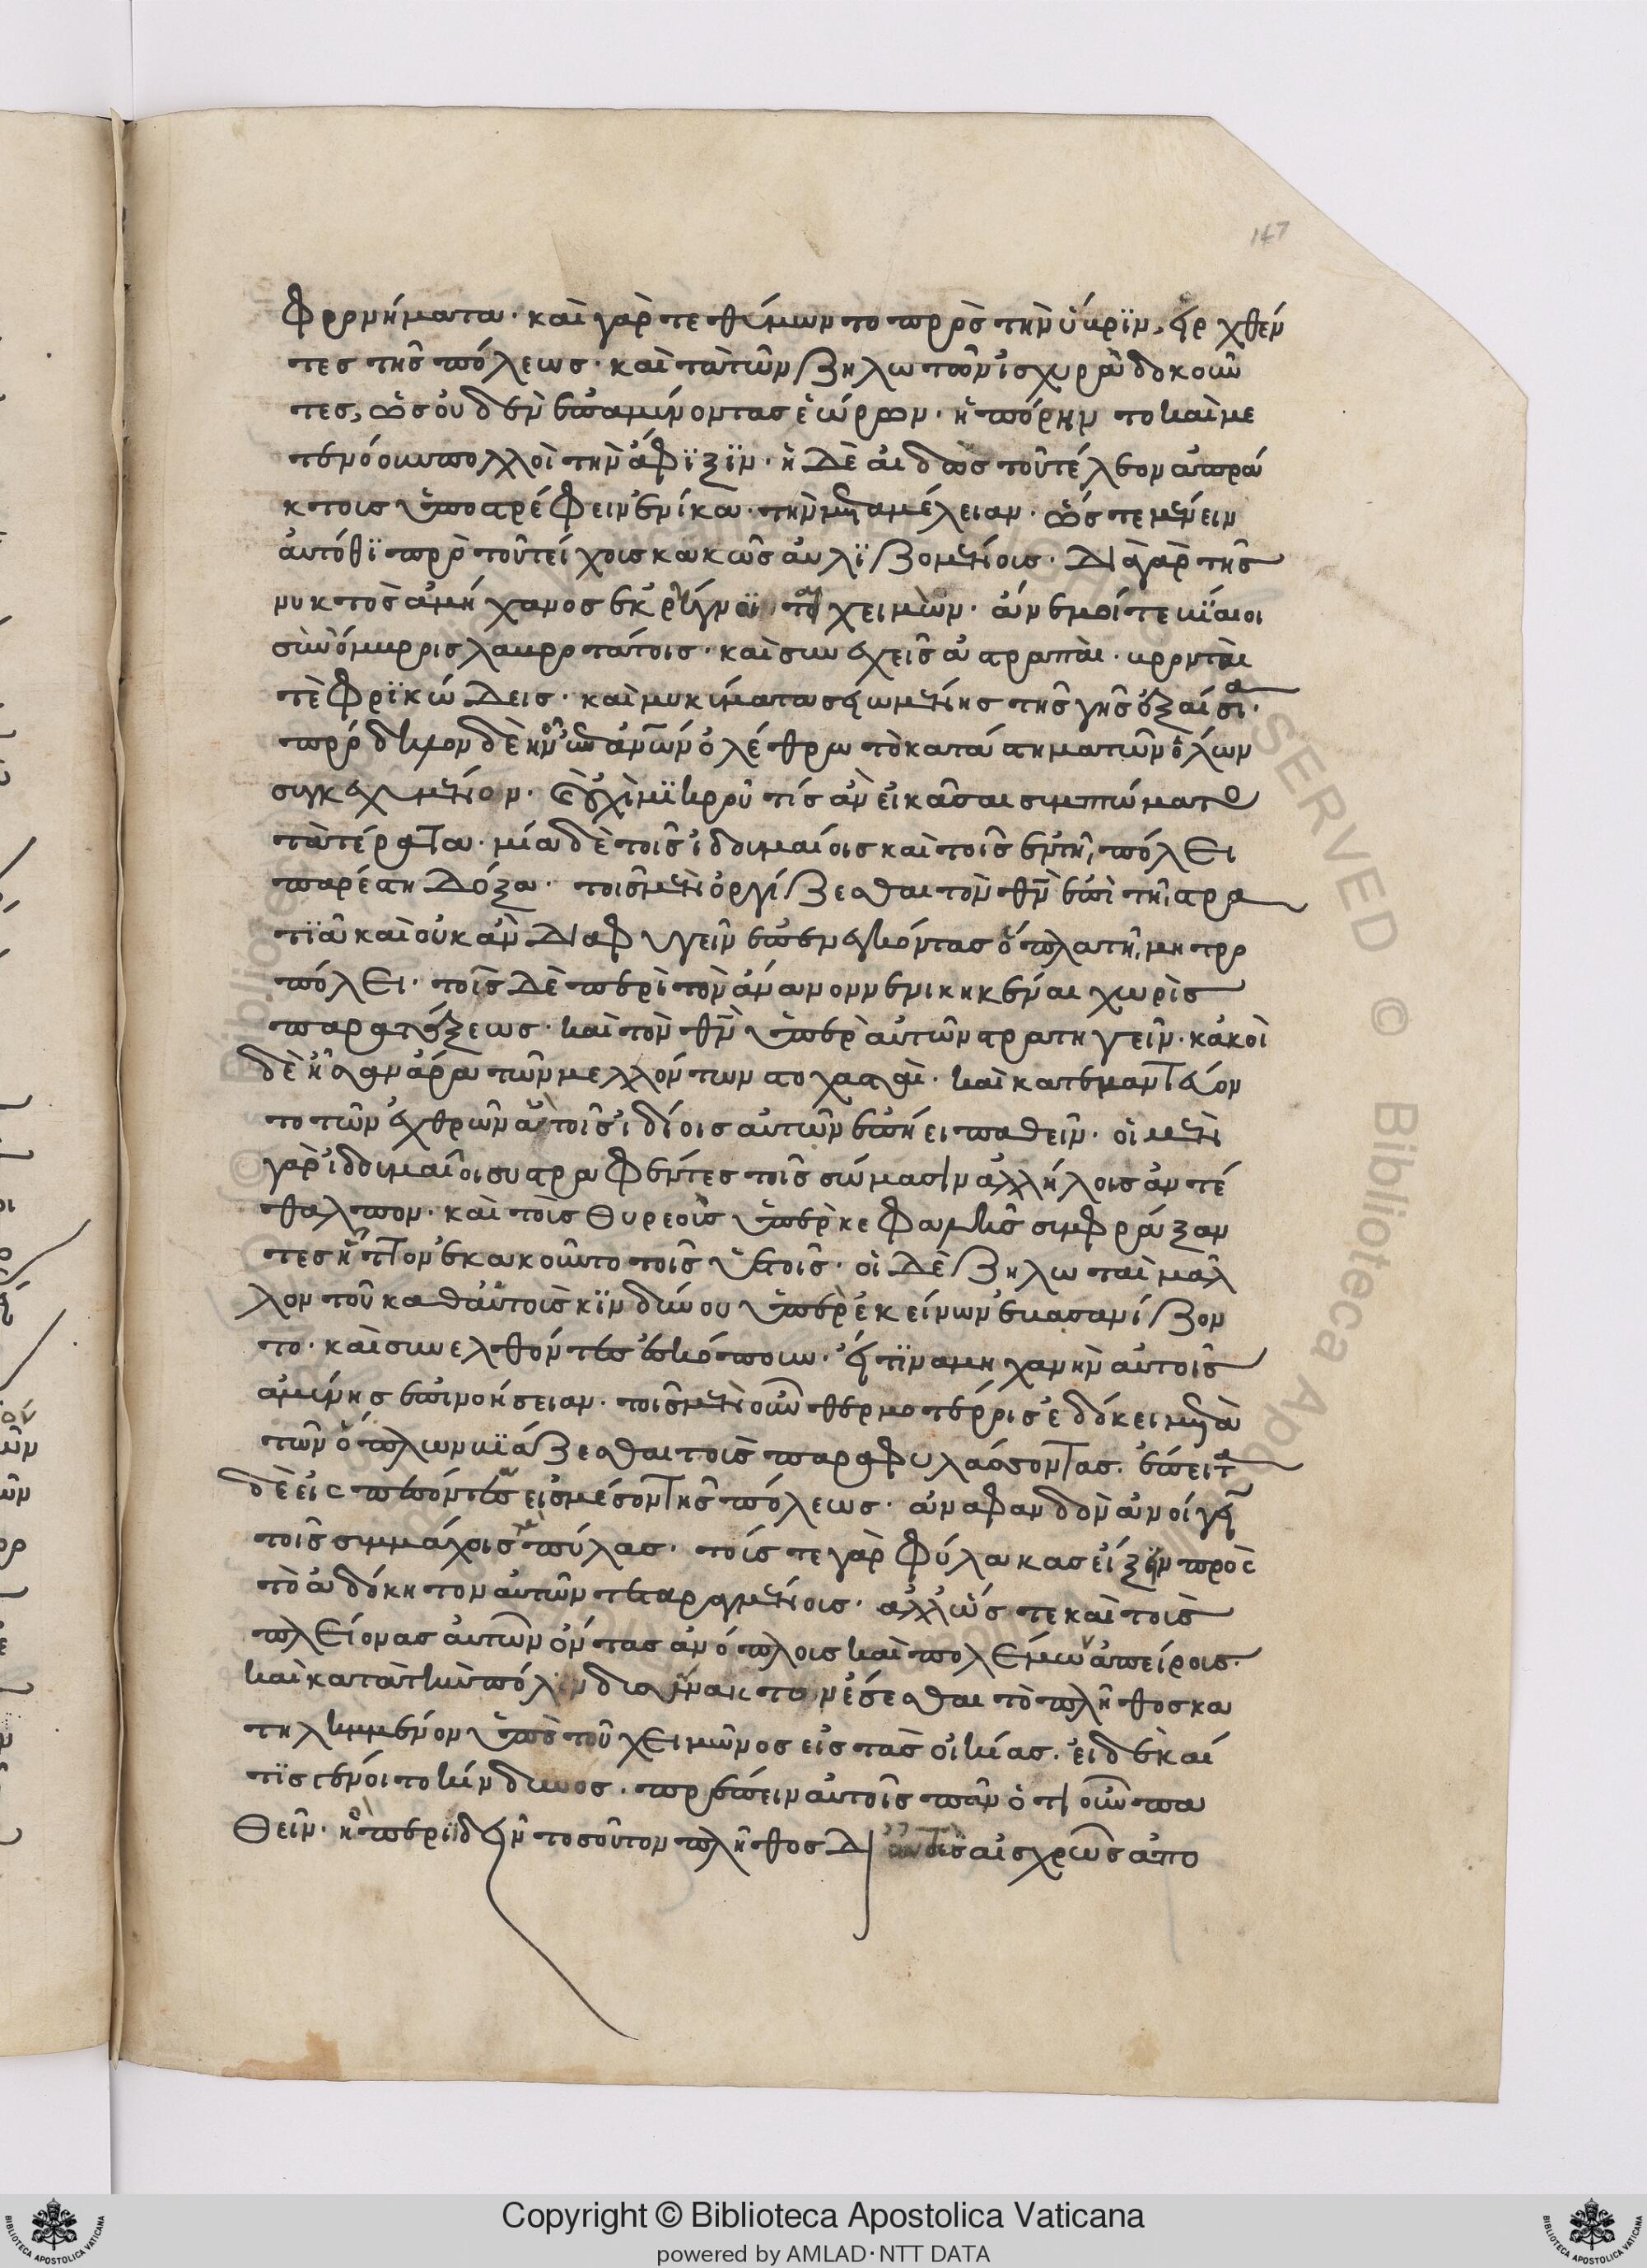 147
φρονήματα· καὶ γὰρ τεθύμωντο πρὸς τὴν ὕβρϊν, εἰρχθέν
τες τῆς πόλεως· καὶ τὰ τῶν ζηλωτῶν ἰσχυρὰ δοκοῦν
τες, ὡς οὐδὲν ἐπαμύνοντας ἑώρων· ἠπόρην το καὶ με
τενόουν πολλοὶ τὴν ἄφϊξϊν· ἡ δὲ αἰδὼς τοῦ τέλεον ἀπρά
κτοις ὑποστρέφειν ἐνίκα τὴν μεταμέλειαν· ὥς τε μένειν
αὐτόθϊ πρὸ τοῦ τείχους κακῶς αὐλϊζομένοις· διὰ γὰρ τῆς
νυκτὸς ἀμήχανος ἐκρήγνυϊ το χειμών· ἄνεμοί τε βϊαιοι
σὺν ὄμβροις λαβροτάτοις· καὶ συνεχεῖς ἀστραπαὶ· βρονταὶ
τὲ φρϊκώδεις· καὶ μυκήματα σειομένης τῆς γῆς ἐξαίσια·
πρόδηλον δὲ ἦν ἐπ ἀνων ὀλέθρω τὸ κατάστημα τῶν ὅλων
συγκεχυμένον· καὶ οὐχὶ μϊκροῦ τίς ἂν εἰκάσαι συμπτώματος
τὰ τέρατα· μία δὲ τοῖς ἰδουμαίοις καὶ τοῖς ἐν τῆ, πόλει
παρέστη δόξα· τοῖς μὲν ὀργίζεσθαι τὸν θν ἐπὶ τῆ, στρα
τϊᾶ καὶ οὐκ ἂν διαφυγεῖν ἐπενεγκόντας ὅπλα τῆ, μητρο
πόλει· τοῖς δὲ περὶ τὸν ἄνανον νενικηκέναι χωρὶς
παρατάξεως· καὶ τὸν θν ὑπὲρ αὐτῶν στρατηγεῖν· κακοὶ
δὲ ἦσαν ἄρα τῶν μελλόντων στοχασταὶ· καὶ κατεμαντεύον
το τῶν ἐχθρῶν ἃ τοῖς ἰδίοις αὐτῶν ἐπήει παθεῖν· οἱ μὲν
γὰρ ἰδουμαῖοι συστραφέντες τοῖς σώμασιν ἀλλήλους ἀντέ
θαλπον· καὶ τοὺς θυρεοὺς ὑπὲρ κεφαλῆς συμφράξαν
τες ἧττον ἐκακοῦντο τοῖς ὑετοῖς· οἱ δὲ ζηλωταὶ μᾶλ
λον τοῦ καθ αὐτοὺς κϊνδύνου ὑπὲρ ἐκείνων ἐβασανίζον
το· καὶ συνελθόντες ἐσκόπουν· εἴ τϊνα μηχανὴν αὐτοῖς
ἀμύνης ἐπινοήσειαν· τοῖς μὲν οὖν θερμοτέροις ἐδόκει μετὰ
τῶν ὅπλων βϊάζεσθαι τοὺς παραφυλάσσοντας· ἔπειτα
δὲ εἰς πεσόντες εἰς μέσον τῆς πόλεως· ἀναφανδὸν ἀνοίγειν
τοῖς συμμάχοις τὰς πύλας· τούς τε γὰρ φύλακας εἴξειν πρὸς
τὸ ἀδόκητον αὐτῶν τεταραγμένους· ἄλλως τε καὶ τοὺς
πλείονας αὐτῶν ὄντας ἀνόπλους καὶ πολέμων ἀπείρους·
καὶ κατὰ τὴν πόλιν δυσύνακτον ἔσεσθαι τὸ πλῆθος κα
τηλημμένον ὑπὸ τοῦ χειμῶνος εἰς τὰς οἰκίας· εἰ δὲ καί
τϊς γένοιτο κίνδυνος· πρέπειν αὐτοῖς πᾶν ὁτιοῦν πα
θεῖν· ἢ περιϊδεῖν τοσοῦτον πλῆθος δι αὐτοὺς αἰσχρῶς ἀπο
Copyright © Biblioteca Apostolica Vaticana
powered by AMLAD·NTT DATA